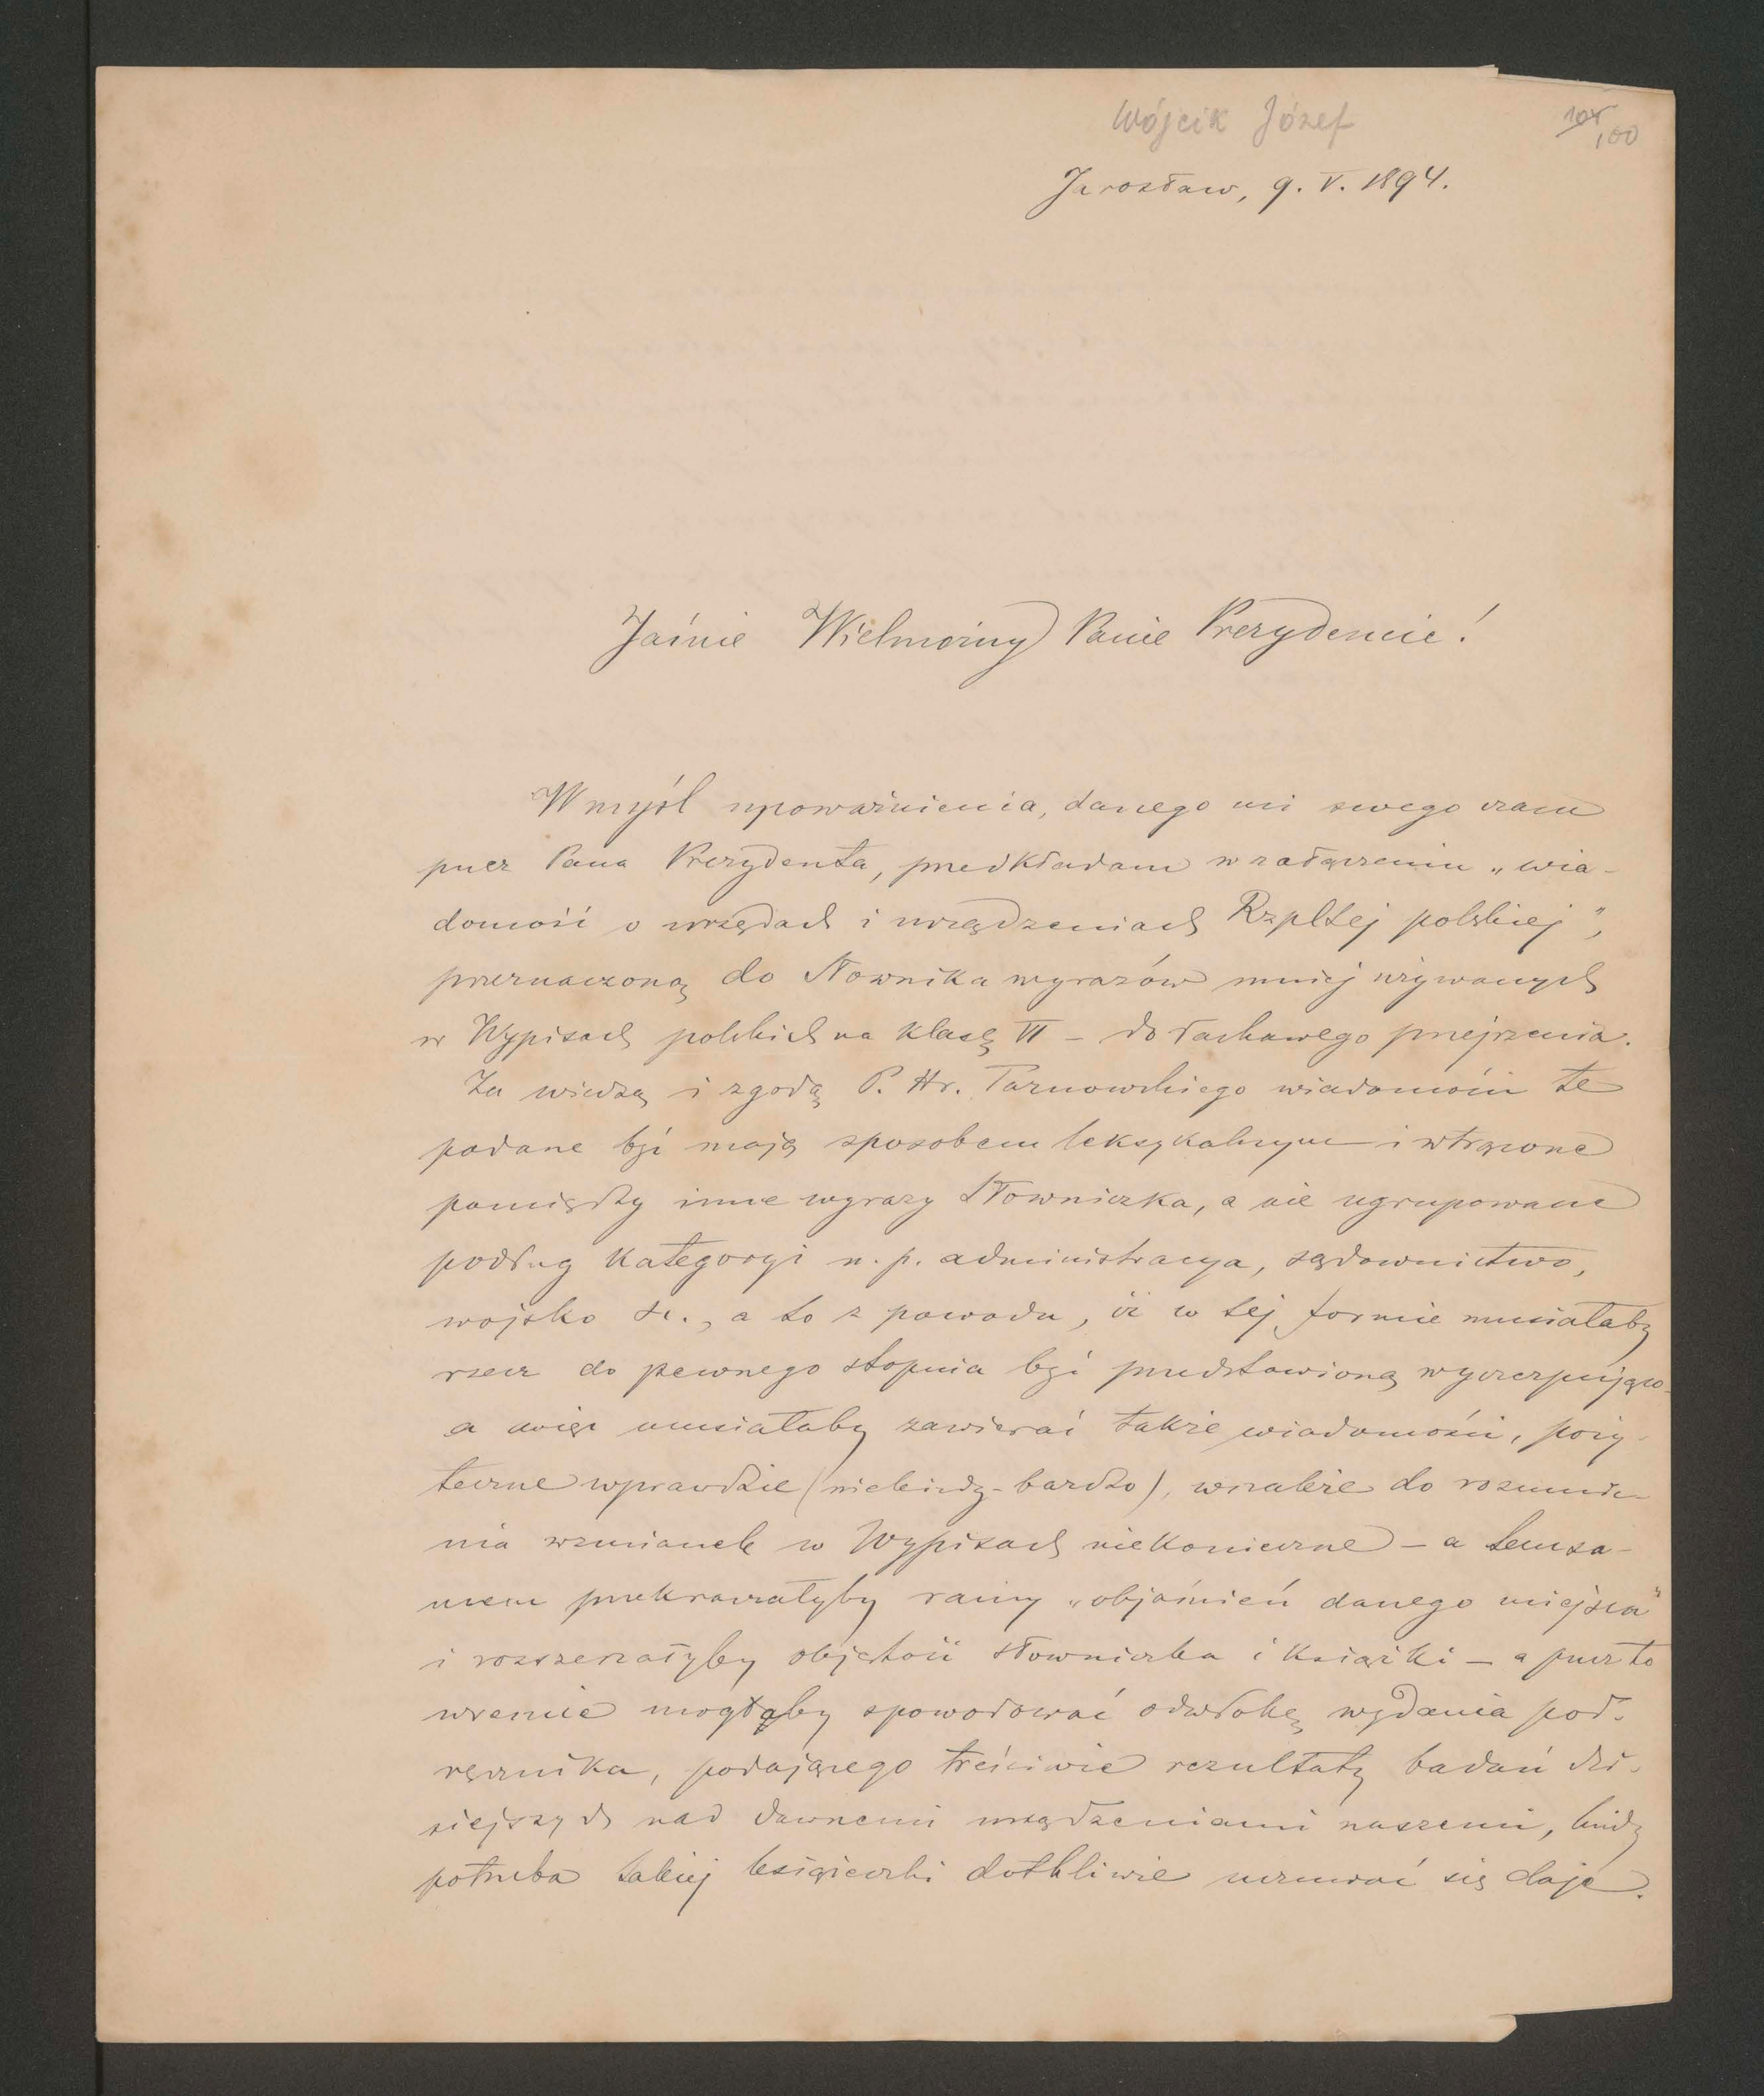 Wójcik Józef
104 100
Jarosław, 9. V. 1894.
Jaśnie Wielmożny Panie Prezydencie!
W myśl upoważnienia, danego mi swego czasu
przez Pana Prezydenta, przedkładam w załączeniu „wia-
domość o urzędach i urządzeniach Rzpltej polskiej”,
przeznaczoną do Słownika wyrazów mniej używanych
w Wypisach polskich na klasę VI – do łaskawego przejrzenia.
Za wiedzą i zgodą P. Hr. Tarnowskiego wiadomości te
podane być mają sposobem leksykalnym i wtrącone
pomiędzy inne wyrazy Słowniczka, a nie ugrupowane
podług kategoryi n. p. administracya, sądownictwo,
wojsko i t., a to z powodu, iż w tej formie musiałaby
rzecz do pewnego stopnia być przedstawioną wyczerpująco –
a więc musiałaby zawierać także wiadomości, poży-
teczne wprawdzie (niekiedy – bardzo), wszakże do rozumie-
nia wzmianek w Wypisach niekonieczne – a temsa-
mem przekraczałyby ramy „objaśnień danego miejsca”
i rozszerzałyby objętość słowniczka i książki – a przez to
wreszcie mogłyby spowodować odwłokę wydania pod-
ręcznika, podającego treściwie rezultaty badań dzi-
siejszych nad dawnemi urządzeniami naszemi, kiedy
potrzeba takiej książeczki dotkliwie uczuwać się daje.